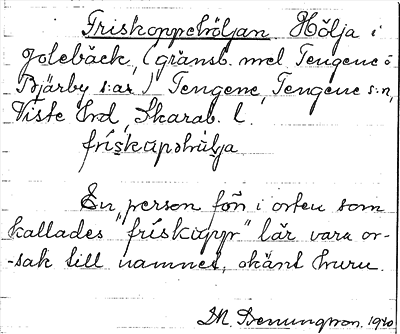 Friskoppehöljan Hölja i
golebäck, (gränsb. mel Tengene o
Bjärby s:ar) Tengene, Tengene s:n,
Viste hrd, Skarab. l.
friskäpohulja
En person förr i orten som
kallades "friskupp" lär vara or-
-sak till namnet, okänt huru.
M Benungson. 1940